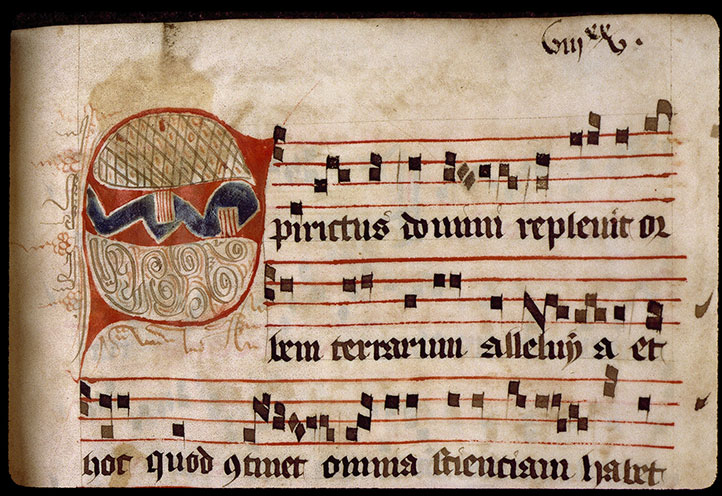 viii^xx v.
Spiritus domini replevit or
bem terrarum alleluy a et
hoc quod 9tinet omnia scienciam habet